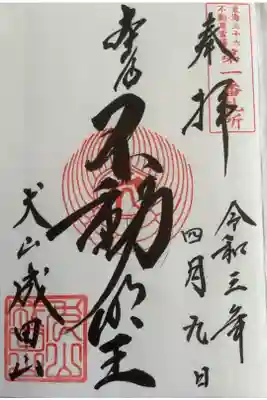 東海三十六
不動尊霊場
第一番札所
奉拝
令和三年
四月九日
本尊
不動明王
犬山成田山